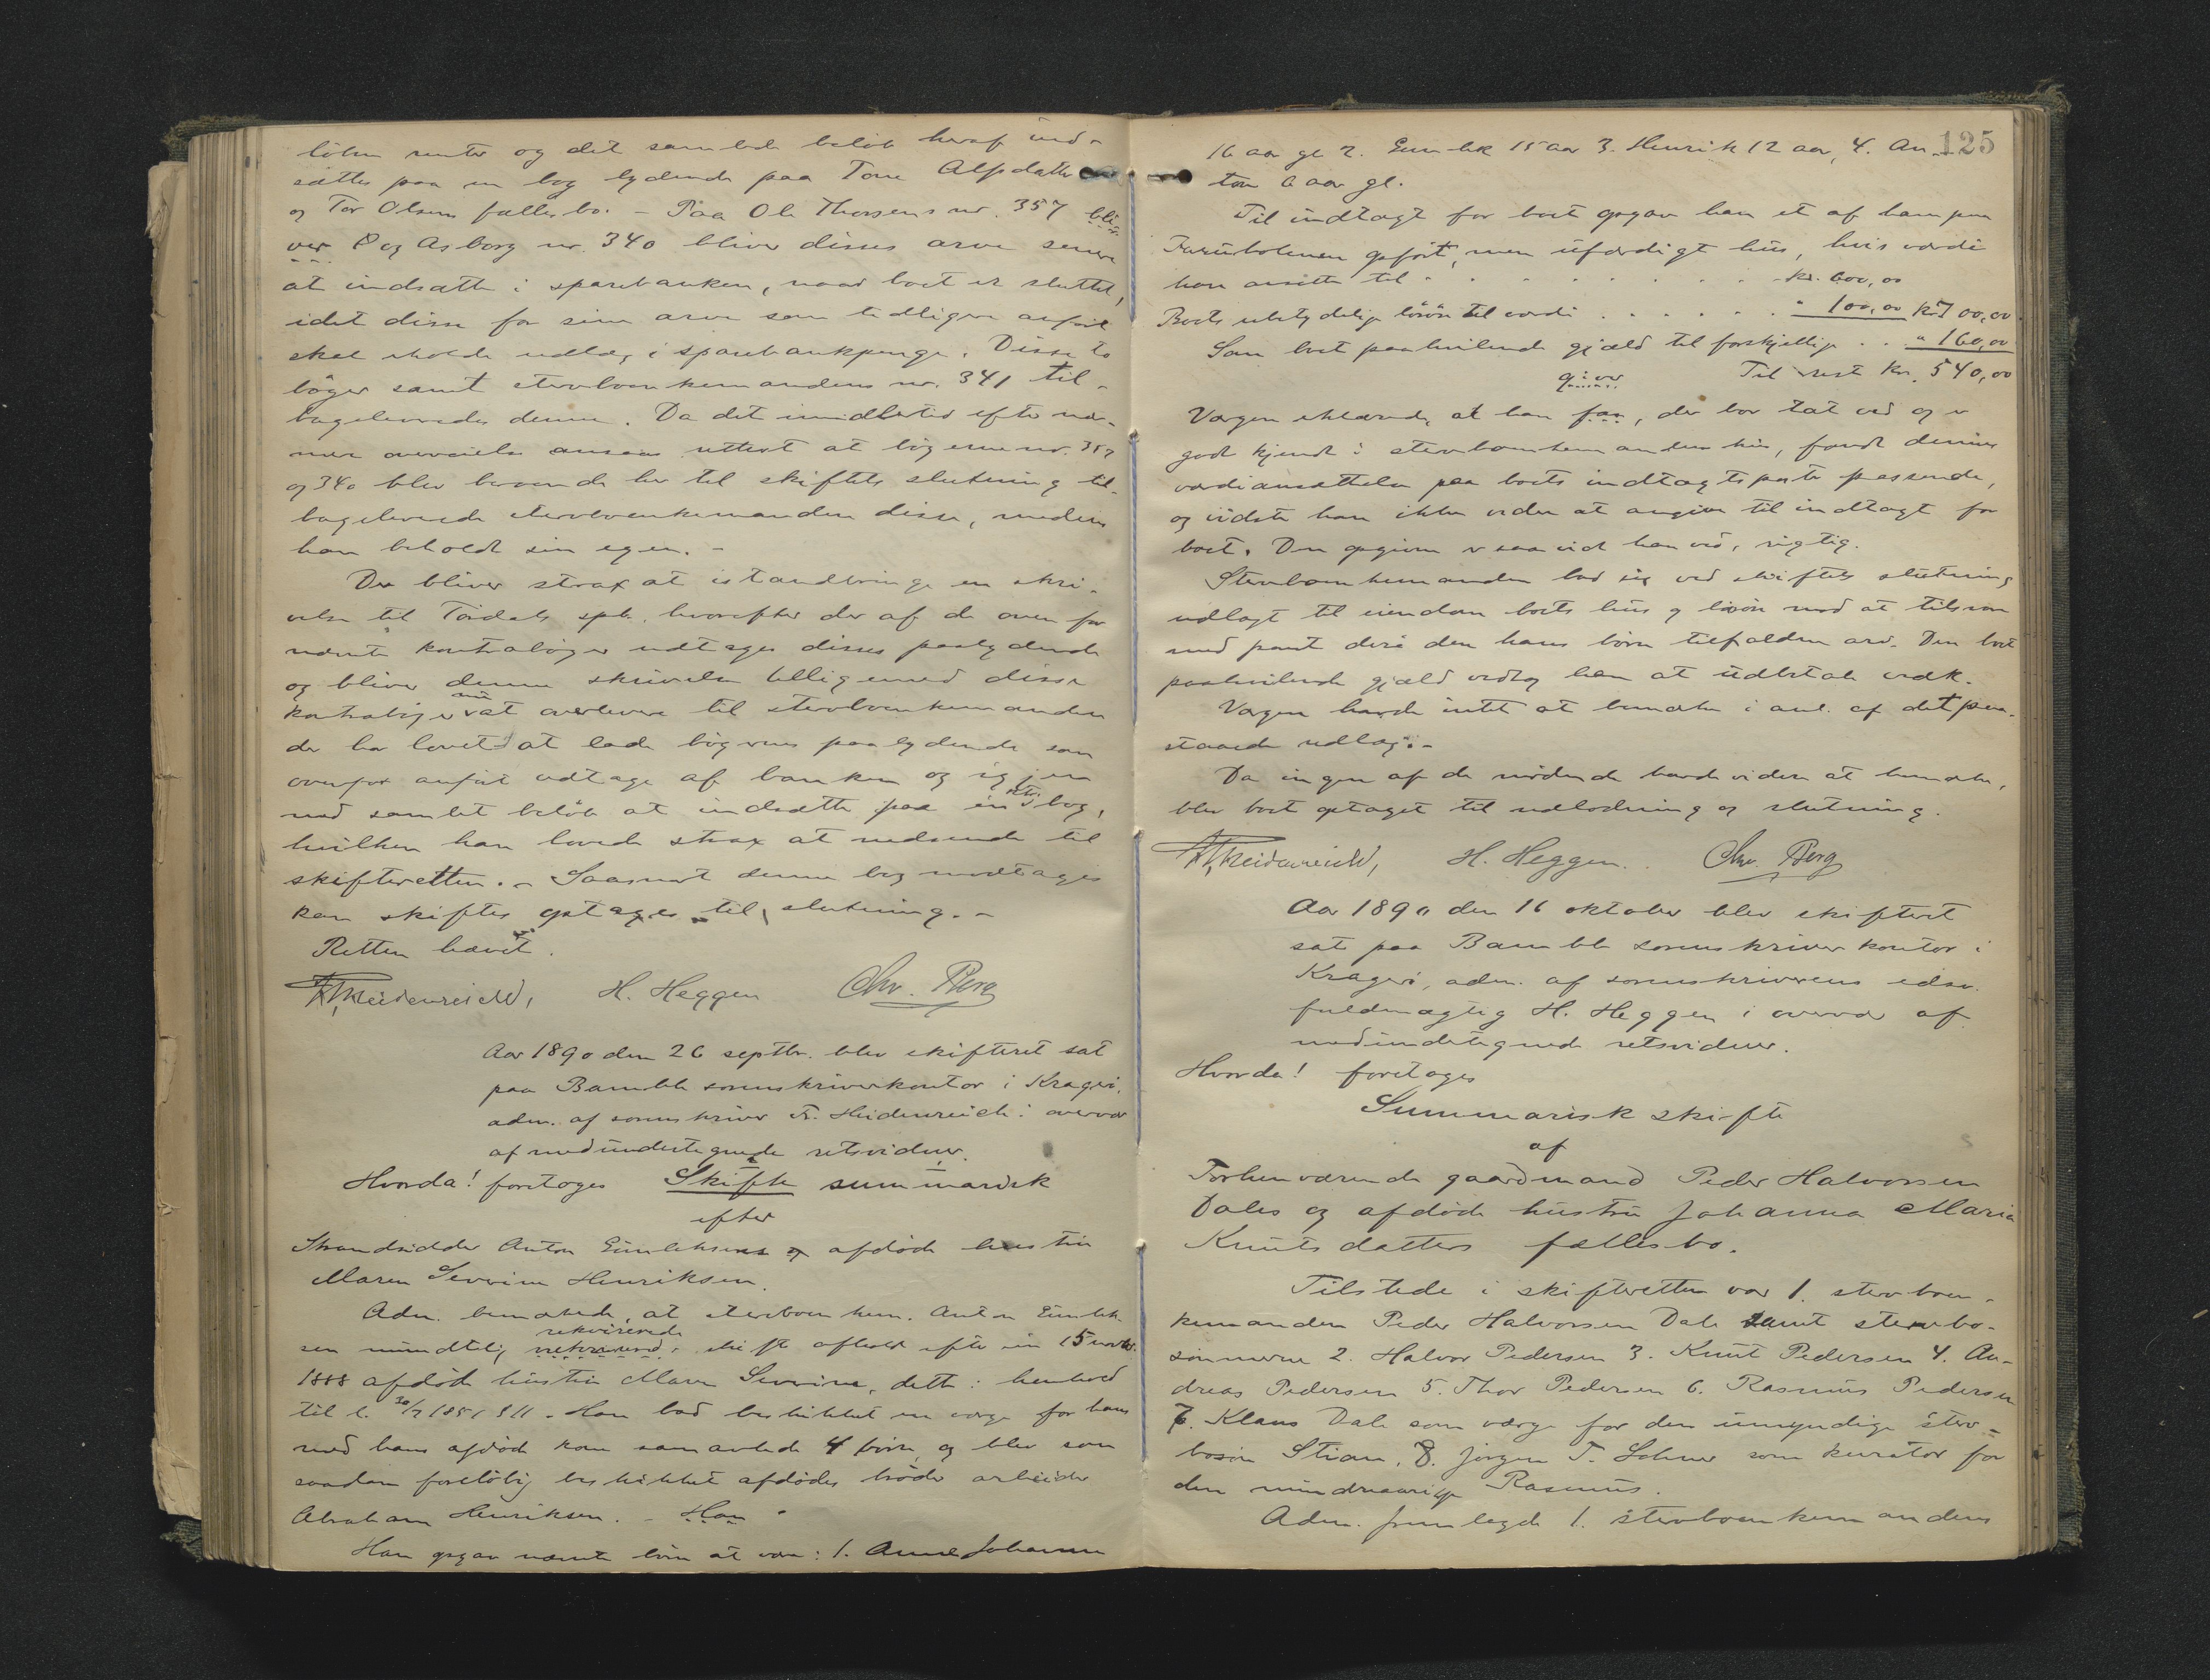 löbne renter og det samlede belöb heraf ind-
sættes paa en bog lydende paa Tone Alfsdatter
og Tor Olsens fællesbo. – Paa Ole Thorsens nr. 357 bli-
ver og Asborg nr. 340 bliver disses arve senere
at indsætte i sparebanken, naar boet er sluttet,
idet disse for sine arve som tidligere anfört
skal erholde udlæg i sparebankpenge. Disse to
böger samt stervboenkemandens nr. 341 til-
bageleveredes denne. Da det imidlertid efter nær-
mere overveielse ansaaes rettest at bögerne nr. 357
og 340 blev beroende her til skiftets slutning til-
bageleverede stervboenkemanden disse, medens
han beholdt sin egen. –
Der bliver strax at istandbringe en skri-
velse til Tördals spb. hvorefter der af de ovenfor
nævnte kontraböger udtages disses paalydende
og bliver denne skrivelse tilligemed disse
kontraböger nu at overlevere til stervboenkemanden
der har lovet at lade bögernes paalydende som
ovenfor anfört udtage af banken og igjen
med samlet belöb at indsætte paa én ny bog,
hvilken han lovede strax at nedsende til
skifteretten. – Saasnart denne bog modtages
kan skiftet optages til slutning. –
Retten hævet.
Fr. Heidenreich, H. Heggen Chr. Berg
Aar 1890 den 26 septbr. blev skifteret sat
paa Bamble sorenskriverkontor i Kragerö,
adm. af sorenskriver Fr. Heidenreich i overvær
af medundertegnede retsvidner.
Hvorda! foretoges Skifte summarisk
efter
Strandsidder Anton Gunleksens afdöde hustru
Maren Severine Henriksen.
Adm. bemærkede, at stervboenkem. Anton Gunlek-
sen mundtlig rekvirerede skifte afholdt efter sin 15
1888 afdöde hustru Maren Severine, dette i henhold
til l. 30/7 1851 § 11. – Han bad beskikket en værge for hans
med hans afdöde kone samavlede 4 börn, og blev som
saadan forelöbig beskikket afdödes broder arbeider
Abraham Henriksen. – Han
Han opgav nævnte börn at være: 1. Anne Johanne
125
16 aar gl. 2. Gunlek 15 aar 3. Henrik 12 aar, 4. An-
ton 6 aar gl.
Til indtægt for boet opgav han et af ham paa
Furuholmen opfört, men ufærdigt hus, hvis værdi
han ansætter til . . . . . . . kr. 600,00
Boets ubetydelige lösöre til værdi . . . . . . " 100,00 kr. 700,00
Som boet paahvilende gjæld til forskjellige . . " 160,00
Til rest kr. 540,00
Værgen erklærede, at han , der bor tæt ved og er
godt kjendt i stervboenkemandens hus, fandt dennes
værdiansættelse paa boets indtægtsposter passende,
og vidste han ikke videre at angive til indtægt for
boet. Den opgivne er saavidt han ved, rigtig.
Stervboenkemanden bad sig ved skiftets slutning
udlagt til eiendom boets hus og lösöre mod at tilsvare
med pant deri den hans börn tilfaldne arv. Den boet
paahvilende gjæld vedtog han at udbetale vedk.
Værgen havde intet at bemærke i anl. af det paa-
staaede udlæg. –
Da ingen af de mödende havde videre at bemærke,
blev boet optaget til udlodning og slutning.
Fr. Heidenreich, H. Heggen. Chr. Berg
Aar 1890 den 16 oktober blev skifteret
sat paa Bamble sorenskriverkontor i
Kragerö, adm. af sorenskriverens edsv.
fuldmægtig H. Heggen i overvær af
medundertegnede retsvidner.
Hvorda! foretoges
Summarisk skifte
af
Forhenværende gaardmand Peder Halvorsen
Dales og afdöde hustru Johanna Maria
Knutsdatters fællesbo.
Tilstede i skifteretten var 1. stervboen-
kemanden Peder Halvorsen Dale samt stervbo-
sönnerne 2. Halvor Pedersen 3. Knut Pedersen 4. An-
dreas Pedersen 5. Thor Pedersen 6. Rasmus Pedersen
7. Klaus Dale som værge for den umyndige sterv-
bosön Stian, 8. Jörgen T. Sohner som kurator for
den mindreaarige Rasmus.
Adm. fremlagde 1. stervboenkemandens